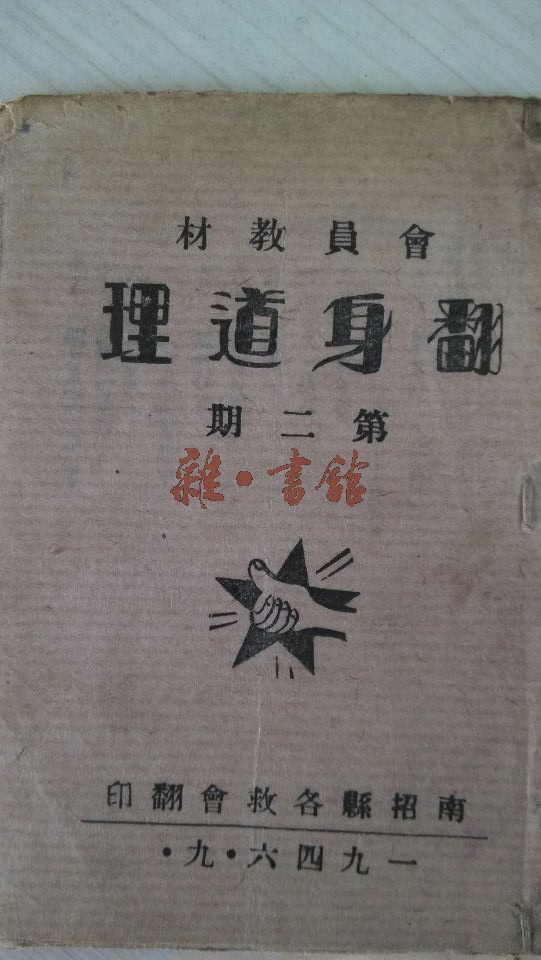 會員教材
翻身道理
第二期
雜·書館
南招縣各救會翻印
一九四六·九·